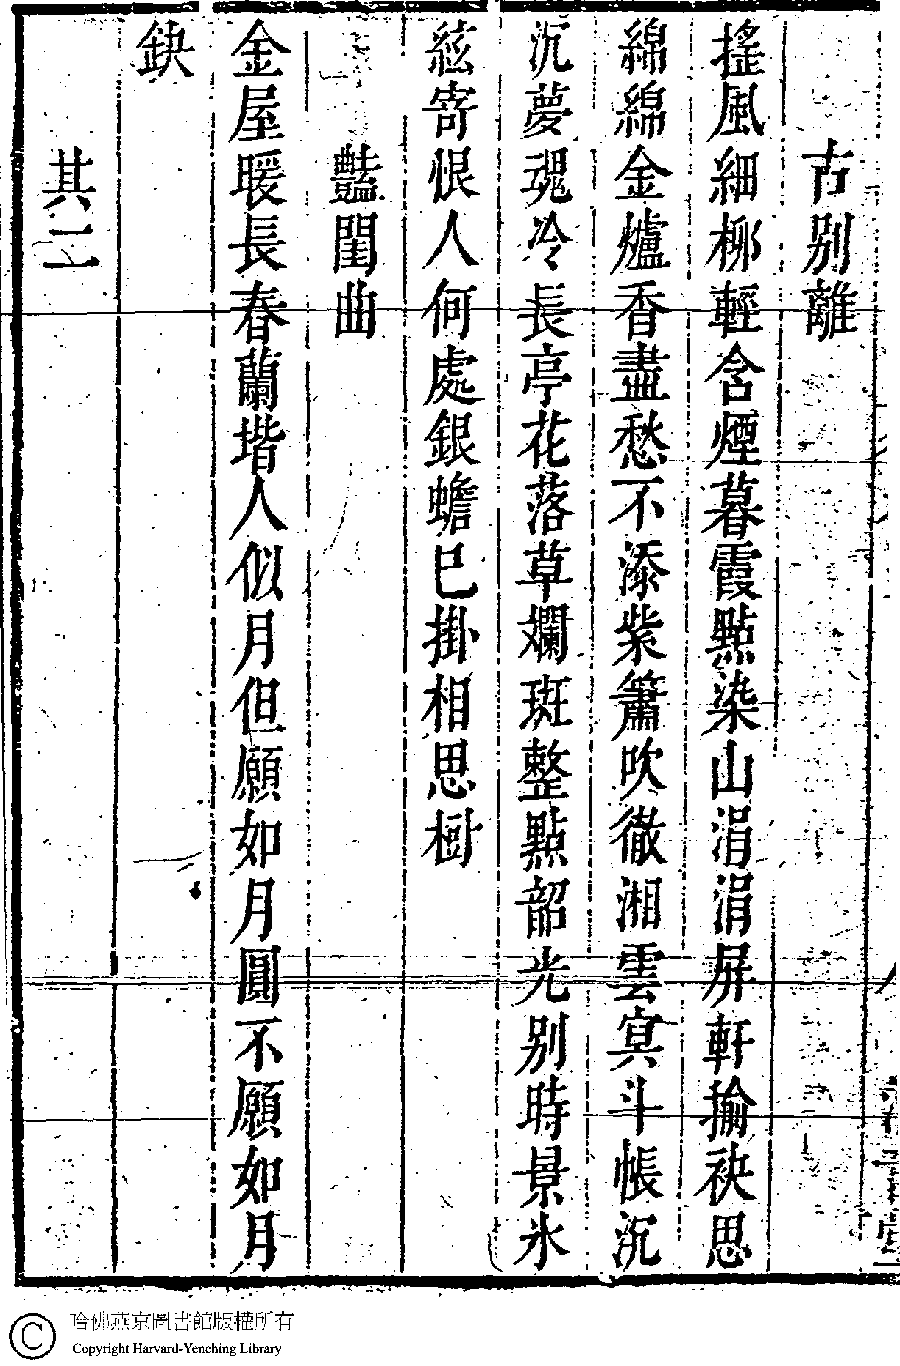 古别離
搖風細柳輕含煙暮霞點染山涓涓屏軒揄袂思
綿綿金爐香盡愁不添紫簫吹徹湘雲寞斗帳沉
沉夢魂冷長亭花落草斕斑整點韶光别時景氷
絃寄恨人何處銀蟾已掛相思樹
豔閨曲
金屋暖長春蘭堦人似月但願如月圓不願如月
鈌
其二
哈佛燕京圖書館版權所有
Copyright Harvard-Yenching Library